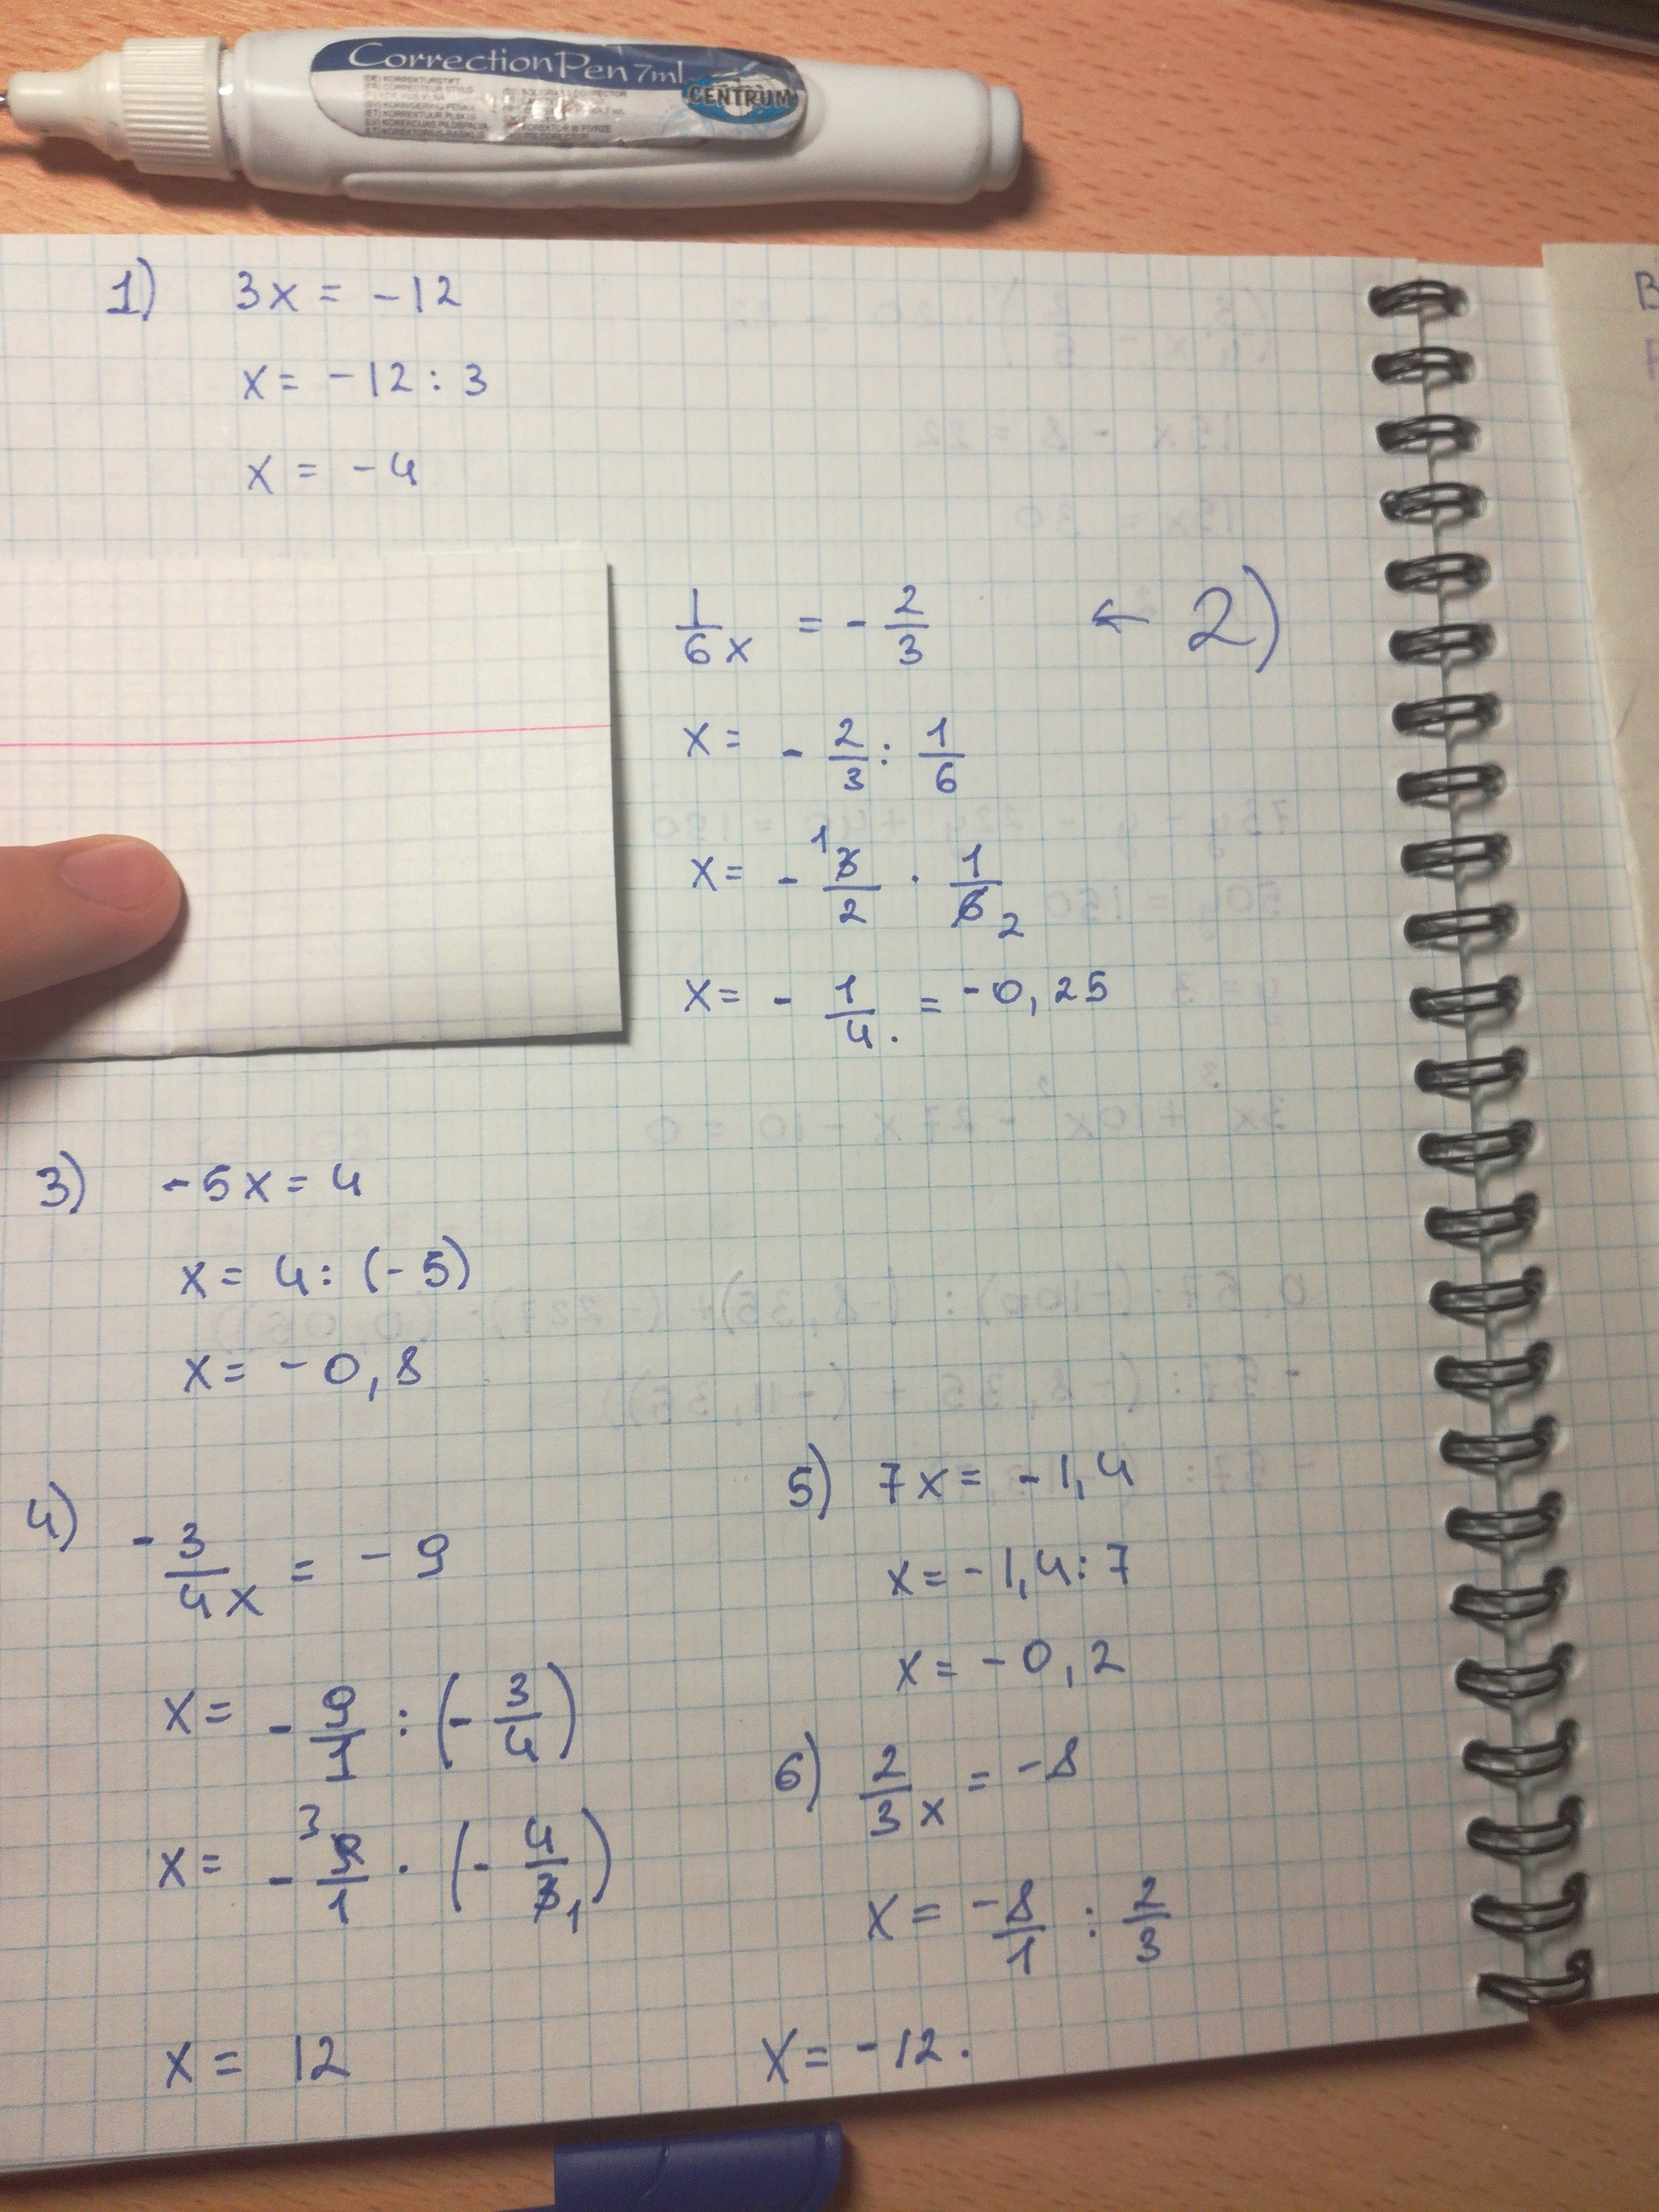 CorrectionPen 7ml
CENTRUM
1) 3x = -12
x = -12 : 3
x = -4
1/6 x = - 2/3 ← 2)
x = - 2/3 : 1/6
x = - 1 3/2 · 1/6 2
x = - 1/4. = -0,25
3) -5x = 4
x = 4 : (-5)
x = -0,8
4) - 3/4 x = -9
x = - 9/1 : (- 3/4)
x = - 3 9/1 · (- 4/3 1)
x = 12
5) 7x = -1,4
x = -1,4 : 7
x = -0,2
6) 2/3 x = -8
x = -8/1 : 2/3
x = -12.